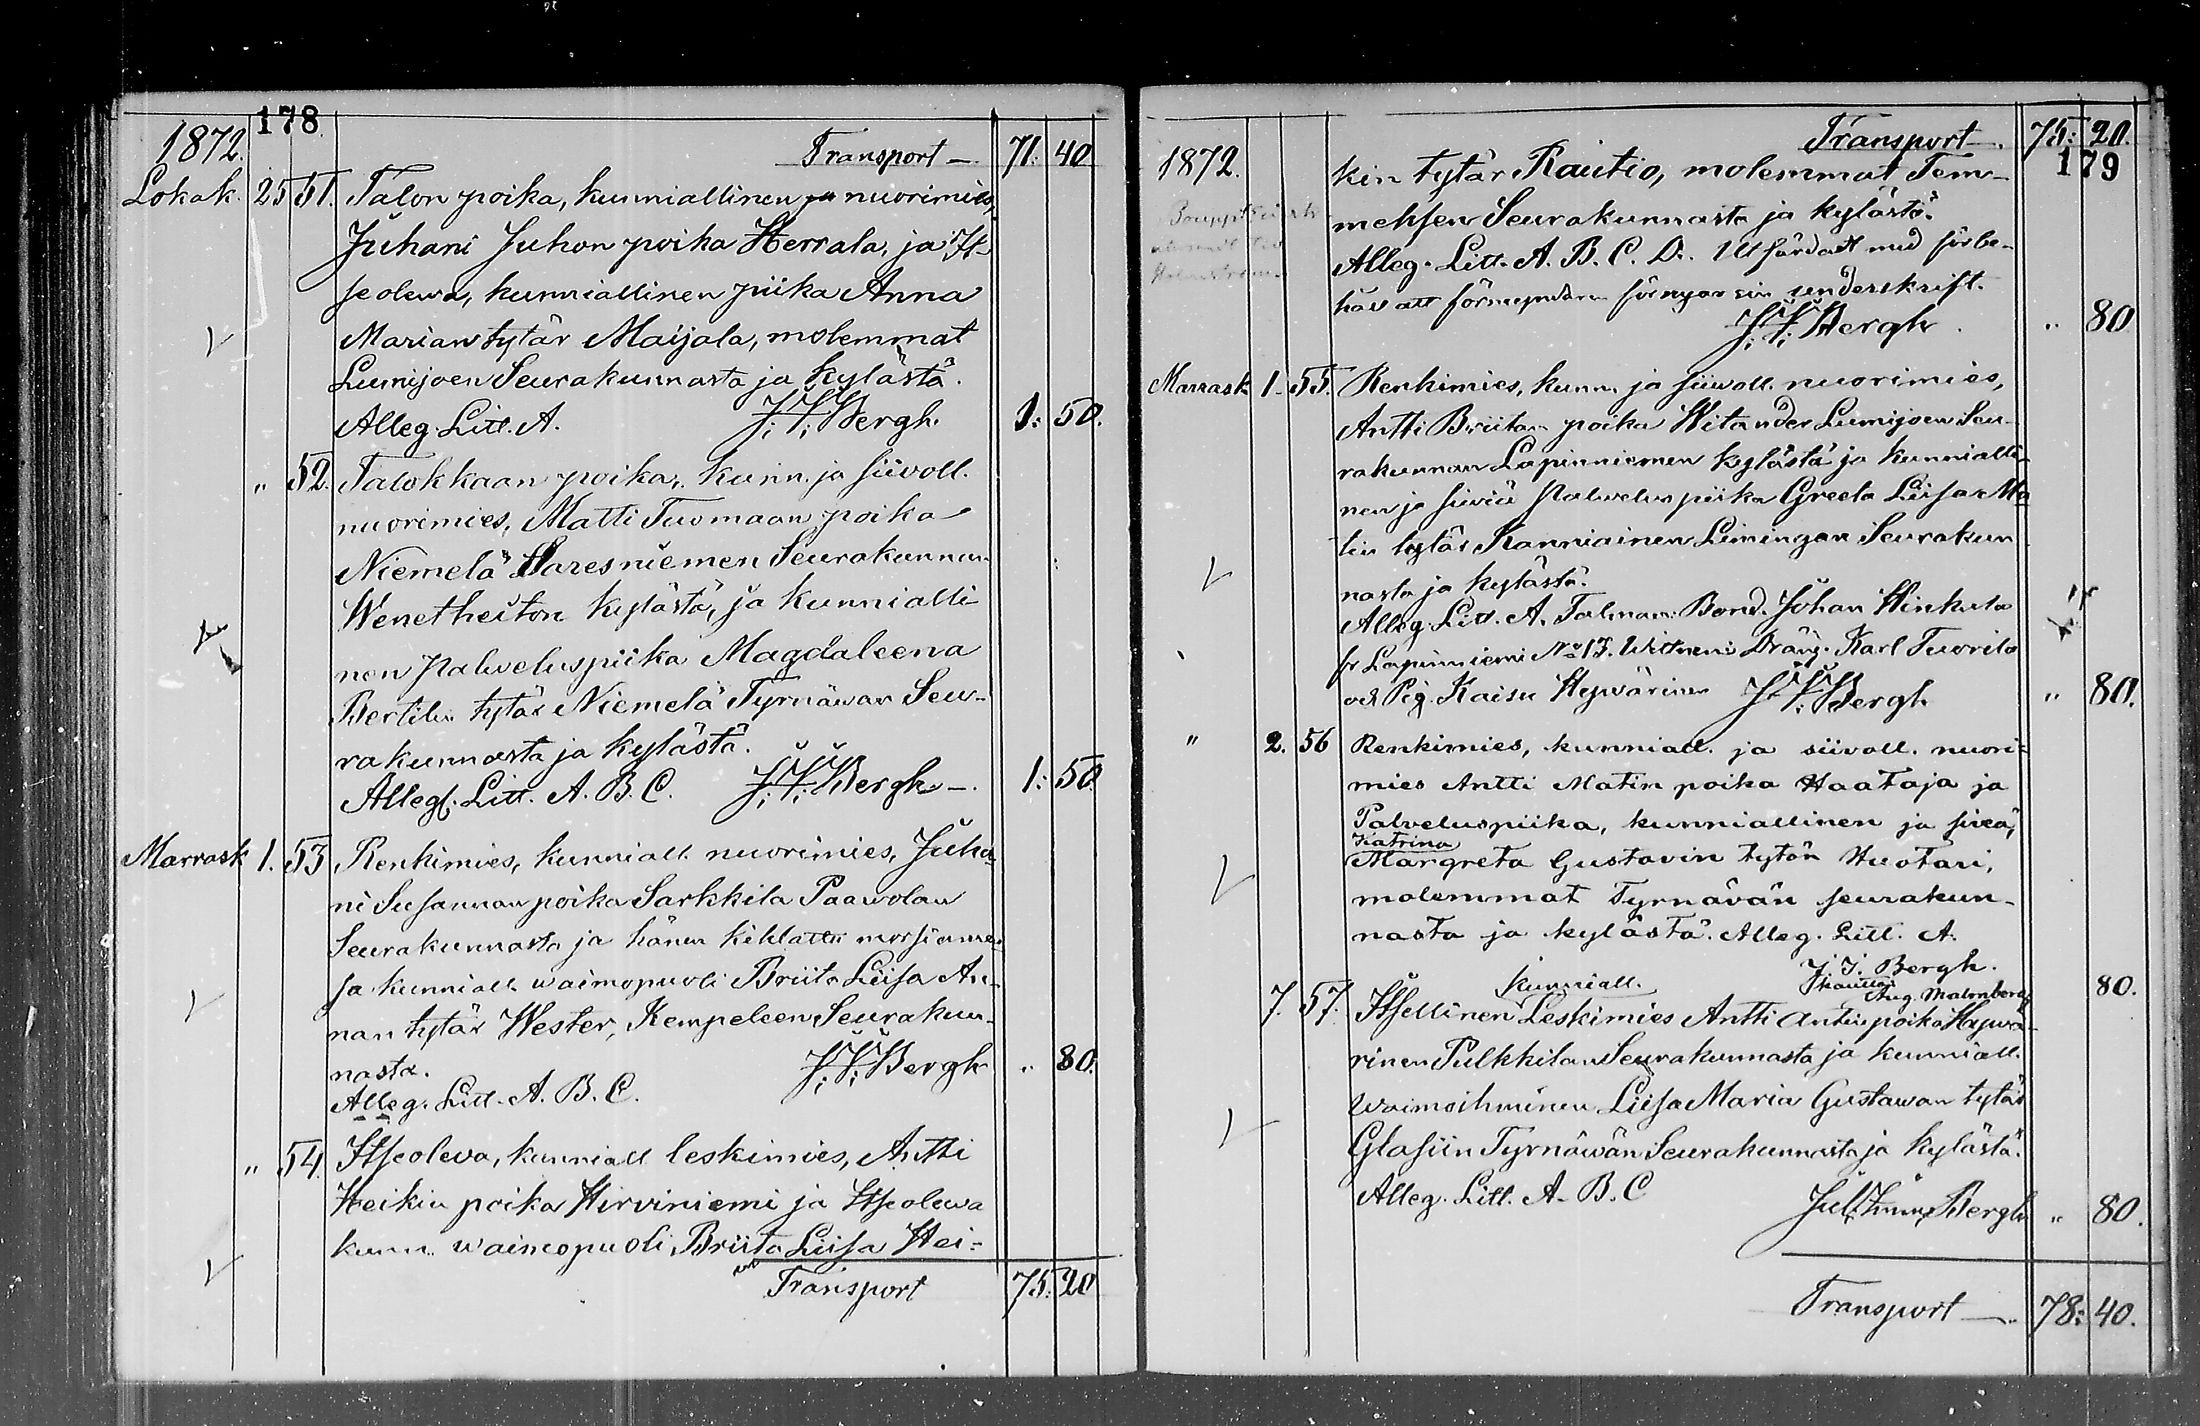 178
1872. Transport — 71: 40
Lokak. 25 51. Talon poika, kunniallinen ja nuorimies,
Juhani Juhon poika Herrala, ja It-
seolewa, kunniallinen piika Anna
Marian tytär Maijala, molemmat
Lumijoen Seurakunnasta ja kylästä.
Alleg. Litt. A. J. J. Bergh. 1: 50.
" 52. Talokkaan poika, kunn. ja siivoll.
nuorimies, Matti Tuomaan poika
Niemelä Säresniemen Seurakunnan
Wenetheiton kylästä, ja kunnialli
nen palweluspiika Magdaleena
Bertilin tytär Niemelä Tyrnäwän Seu-
rakunnasta ja kylästä.
Alleg. Litt. A. B. C. J. J. Bergh — 1: 50.
Marrask 1. 53 Renkimies, kunniall. nuorimies, Juha-
ni Susannan poika Sarkkila Paawolan
Seurakunnasta ja hänen kihlattu morsiamen
sa kunniall waimopuoli Briita Liisa An-
nan tytär Wester, Kempeleen Seurakun-
nasta. J. J. Bergh " 80.
Alleg. Litt. A. B. C.
" 54. Itseolewa, kunniall leskimies, Antti
Heikin poika Hirviniemi ja Itseolewa
kunn. waimopuoli, Briita Liisa Hei-
Transport 75: 20
Transport —. 75: 20.
179
1872. kin tytär Rautio, molemmat Tem-
meksen Seurakunnasta ja kylästä.
Alleg. Litt. A. B. C. D. Utfärdadt med förbe-
håll att förmyndaren förnyar sin underskrift.
J. J. Bergh. " 80
Marrask 1. 55. Renkimies, kunn. ja siiwoll. nuorimies,
Antti Briitan poika Witander Lumijoen Seu-
rakunnan Lapinniemen kylästä ja kunnialli-
nen ja siwiä Palweluspiika Greeta Liisa Ma
tin tytär Kanniainen Limingan Seurakun
nasta ja kylästä.
Alleg. Litt. A. Talman: Bond. Johan Hinkula
fr Lapinniemi No 13. Wittnen: Dräng. Karl Tuorila
och Pig. Kaisu Hywärinen J. J. Bergh " 80.
" 2. 56 Renkimies, kunniall. ja siivoll. nuori-
mies Antti Matin poika Haataja ja
Palveluspiika, kunniallinen ja siveä,
Katrina
Margreta Gustavin tytär Huotari,
molemmat Tyrnävän seurakun-
nasta ja kylästä. Alleg. Litt. A.
J. J. Bergh.
Aug. Malmberg 80.
kunniall.
7. 57. Itsellinen Leskimies Antti Antinpoika Hywä-
rinen Pulkkilan Seurakunnasta ja kunniall.
Waimoihminen Liisa Maria Gustawan tytär
Glasiin Tyrnäwän Seurakunnasta ja kylästä.
Alleg. Litt. A. B. C Bergh " 80.
Transport —. 78: 40.